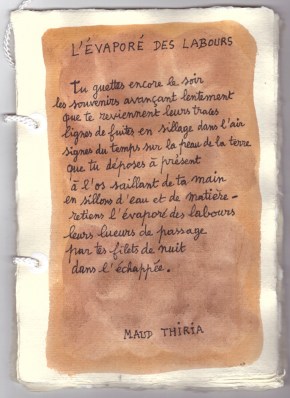 L'ÉVAPORÉ DES LABOURS
Tu guettes encore le soir
les souvenirs avançant lentement
que te reviennent leurs traces
lignes de fuites en sillage dans l'air
signes du temps sur la peau de la terre
que tu déposes à présent
à l'os saillant de ta main
en sillons d'eau et de matière -
retiens l'évaporé des labours
leurs lueurs de passage
par tes filets de nuit
dans l'échappée.
MAUD THIRIA